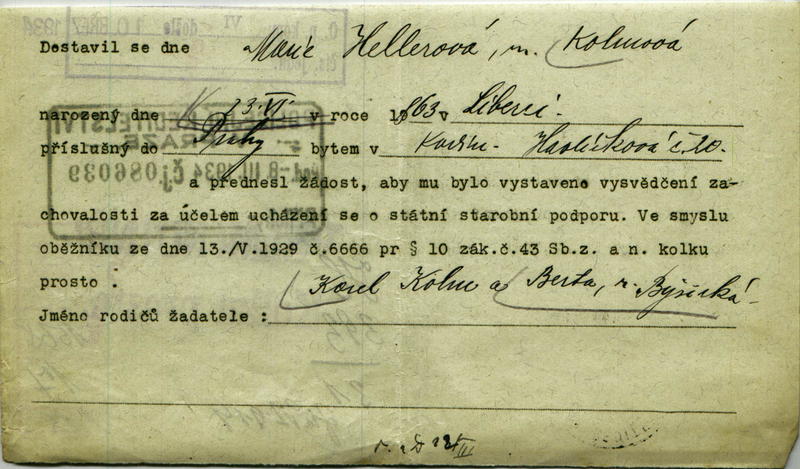 Destavil se dne Marie Hellerová, n. Kolmová
narozený dne 23.VI. v roce 1863 v Liberci.
příslušný do Prahy bytem v Karlín - Havlíčková č. 20.
a přednesl žádost, aby mu bylo vystaveno vysvědčení za-
chovalosti za účelem ucházení se o státní starobní podporu. Ve smyslu
oběžníku ze dne 13./V.1929 č.6666 pr § 10 zák.č.43 Sb.z. a n. kolku
prosto .
Karel Kolm a Berta, n.
Jméno rodičů žadatele :